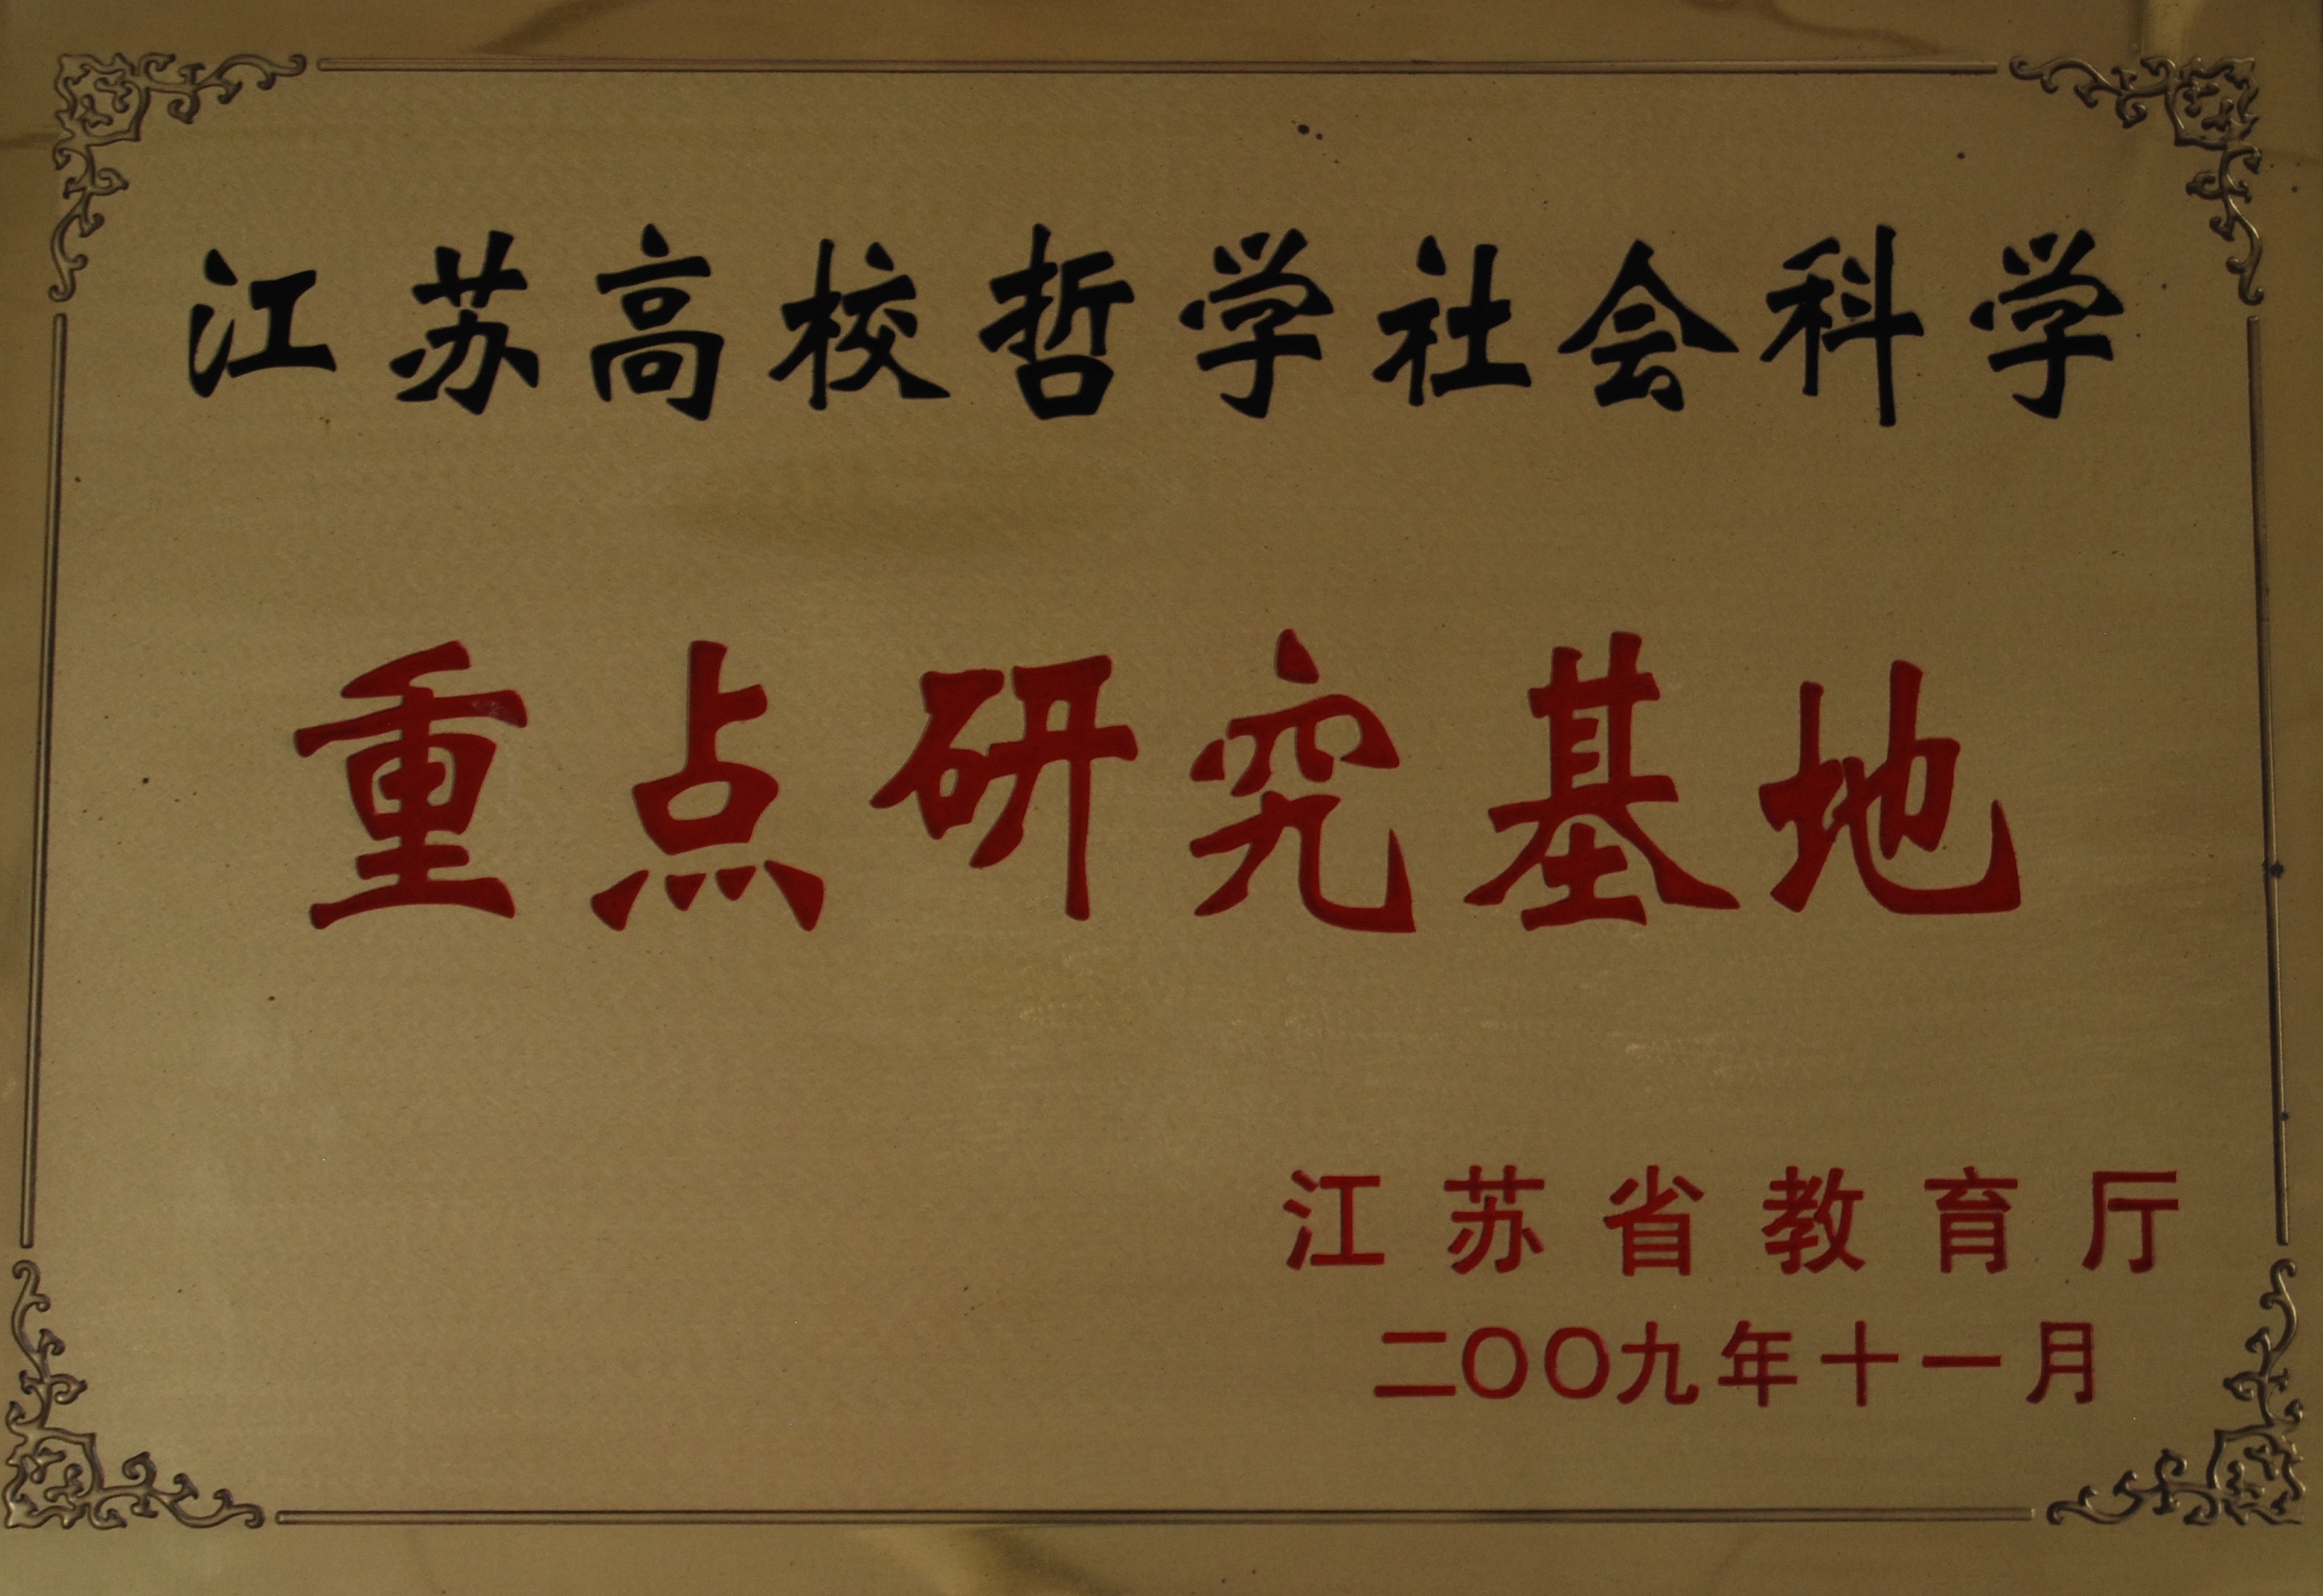 江苏高校哲学社会科学
重点研究基地
江苏省教育厅
二〇〇九年十一月